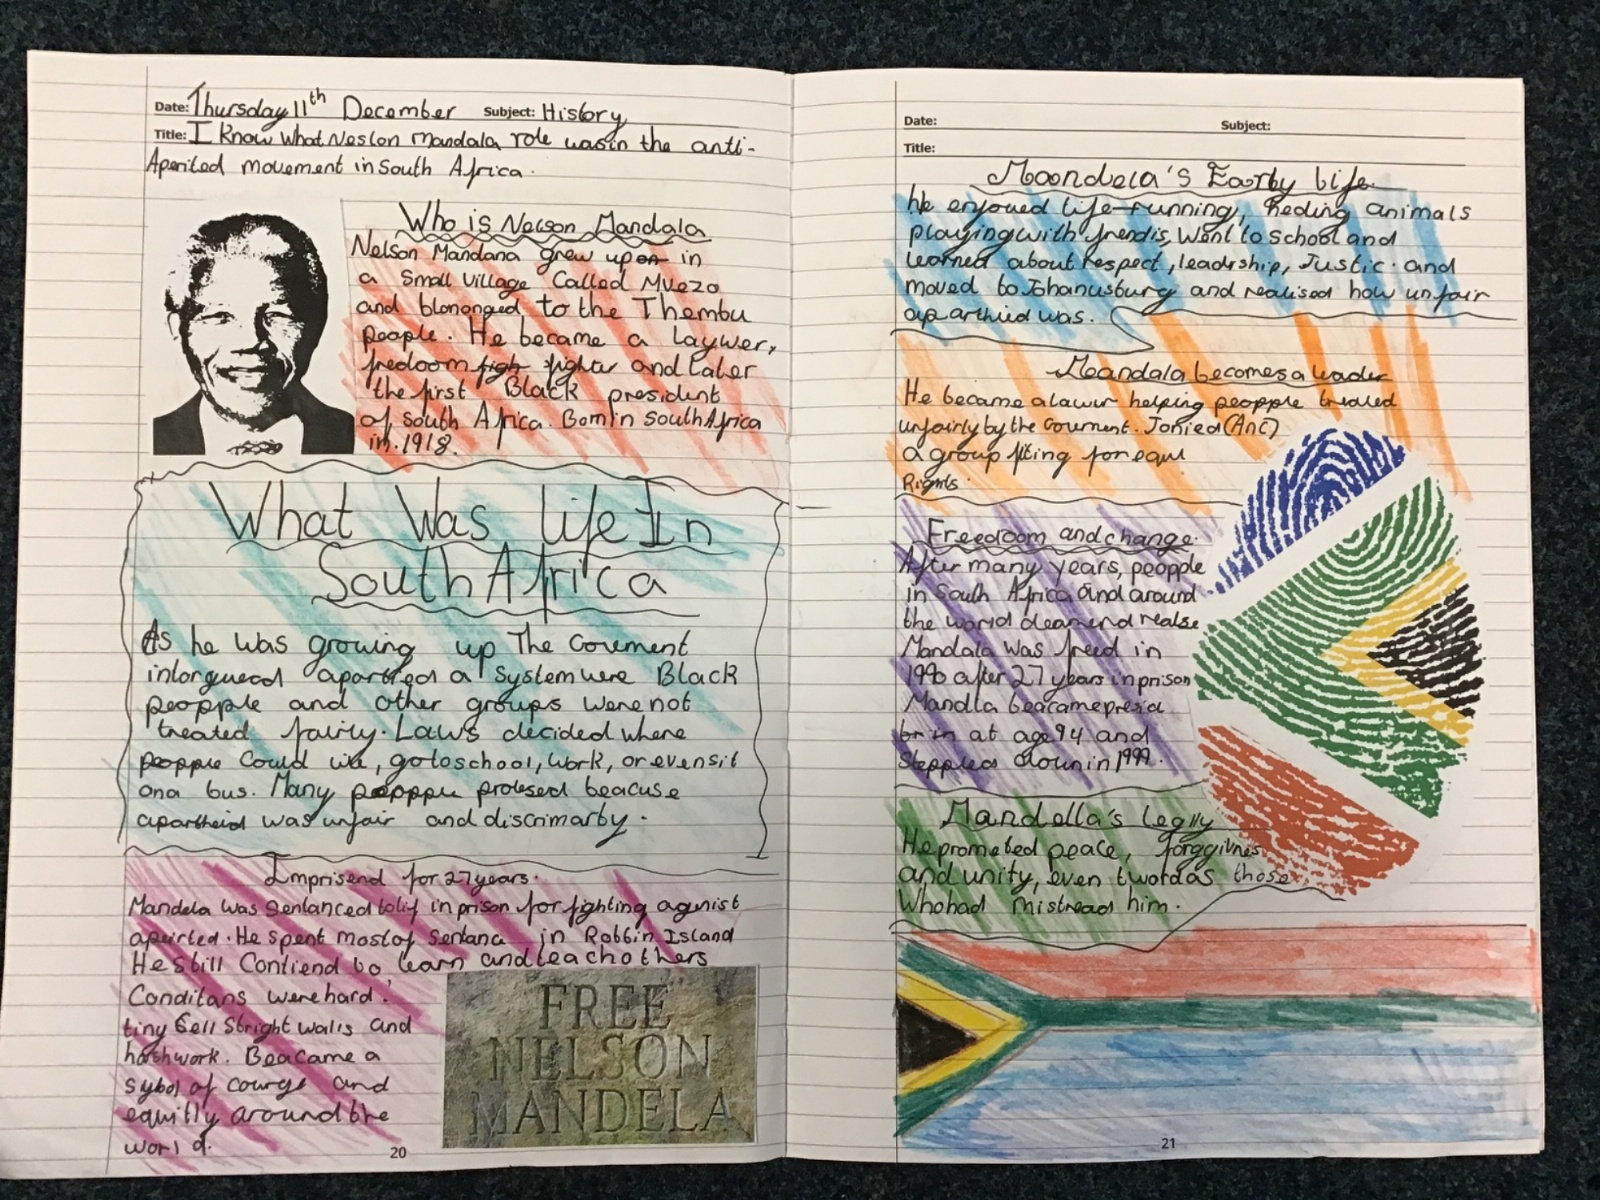 Date: Thursday 11th December Subject: History
Title: I know what Neslon mandala role was in the anti-
Aperited movement in South Africa.
Who is Nelson Mandala
Nelson Mandana grew up on in
a Small village Called Mvezo
and blononged to the Thembu
people. He became a laywer,
fredoom figh fighter and later
the first Black president
of south Africa. Born in South Africa
in. 1918.
What Was life In
South Africa
As he was growing up The Goverment
apartied a system were Black
peopple and other groups were not
treated fairly. Laws decided where
peopple could live, go to school, work, or even sit
on a bus. Many peopple protesed beacuse
apartheid was unfair and discrimarby.
Imprisend for 27 years.
Mandela was sentanced to lif in prison for fighting agenist
apeirted. He spent most of Sentana in Robbin Island
He still Contiend to learn and teach others
Conditans were hard:
tiny Cell Stright walls and
harshwork. Beacame a
sybol of courge and
equitly around the
world.
FREE
NELSON
MANDELA
20
Date: Subject:
Title:
Mandela's Early life
He enjoyed life-running, heding animals
playing with frendis, Went to school and
learned about respect, leadrship, Justic. and
moved to Johanusburg and realised how unfair
aparthied was.
Mandala becomes a leader
He became a lawur helping peopple treated
unfairly by the Goverment. Jonied (Anc)
a group fiting for equl
Rights.
Freedoom and change.
After many years, peopple
in South Africa and around
the world deamend realse
Mandala was freed in
1990 after 27 years in prison
Mandla beacame presid
at age 94 and
Steppled down in 1999.
Mandella's legily
He prometed peace, forggivnes
and unity, even twordas those
Who had mistread him.
21